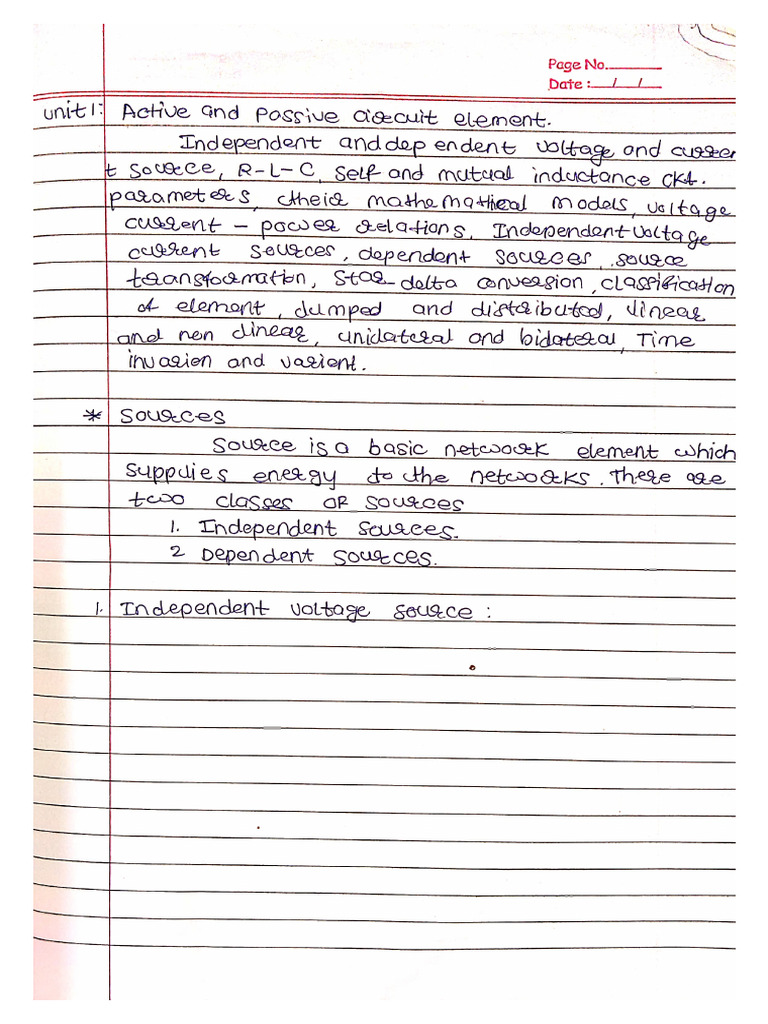 Page No.
Date : / /
Unit 1: Active and Passive circuit element.
Independent and dependent voltage and curren
t source, R-L-C, self and mutual inductance ckt.
parameters, their mathematical models, voltage
current - power relations, Independent voltage
current sources, dependent sources, source
transformation, Star-delta conversion, classification
of element, lumped and distributed, linear
and non linear, unilateral and bidateral, Time
invarion and varient.
* Sources
Source is a basic network element which
supplies energy to the networks. There are
two classes of sources
1. Independent sources.
2 Dependent sources.
1. Independent voltage source :